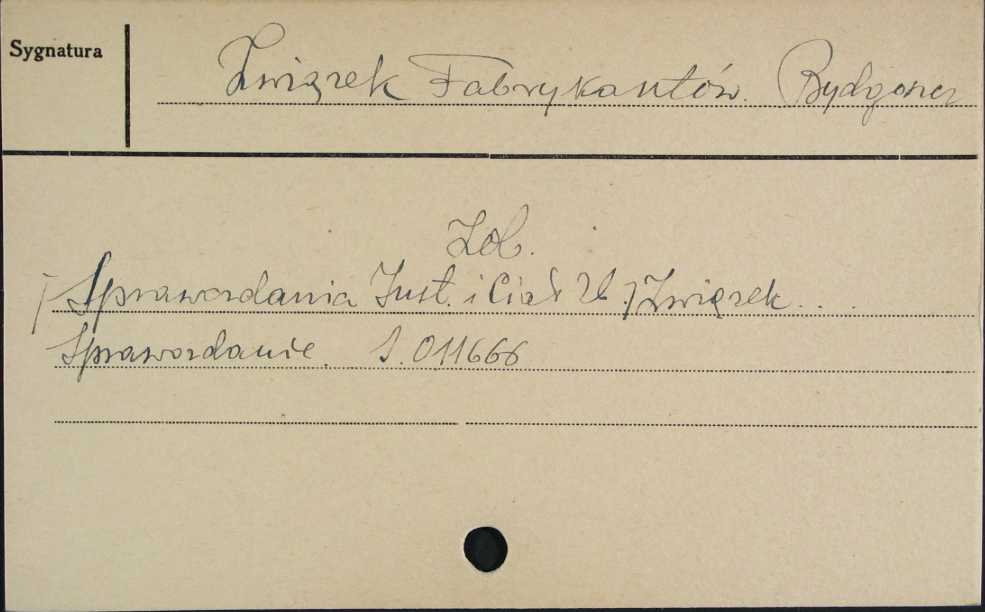 Sygnatura
Związek Fabrykantów. Bydgoszcz
Zob.
[Sprawozdania Inst. i Ciał Zb.] Związek...
Sprawozdanie. S. 011666